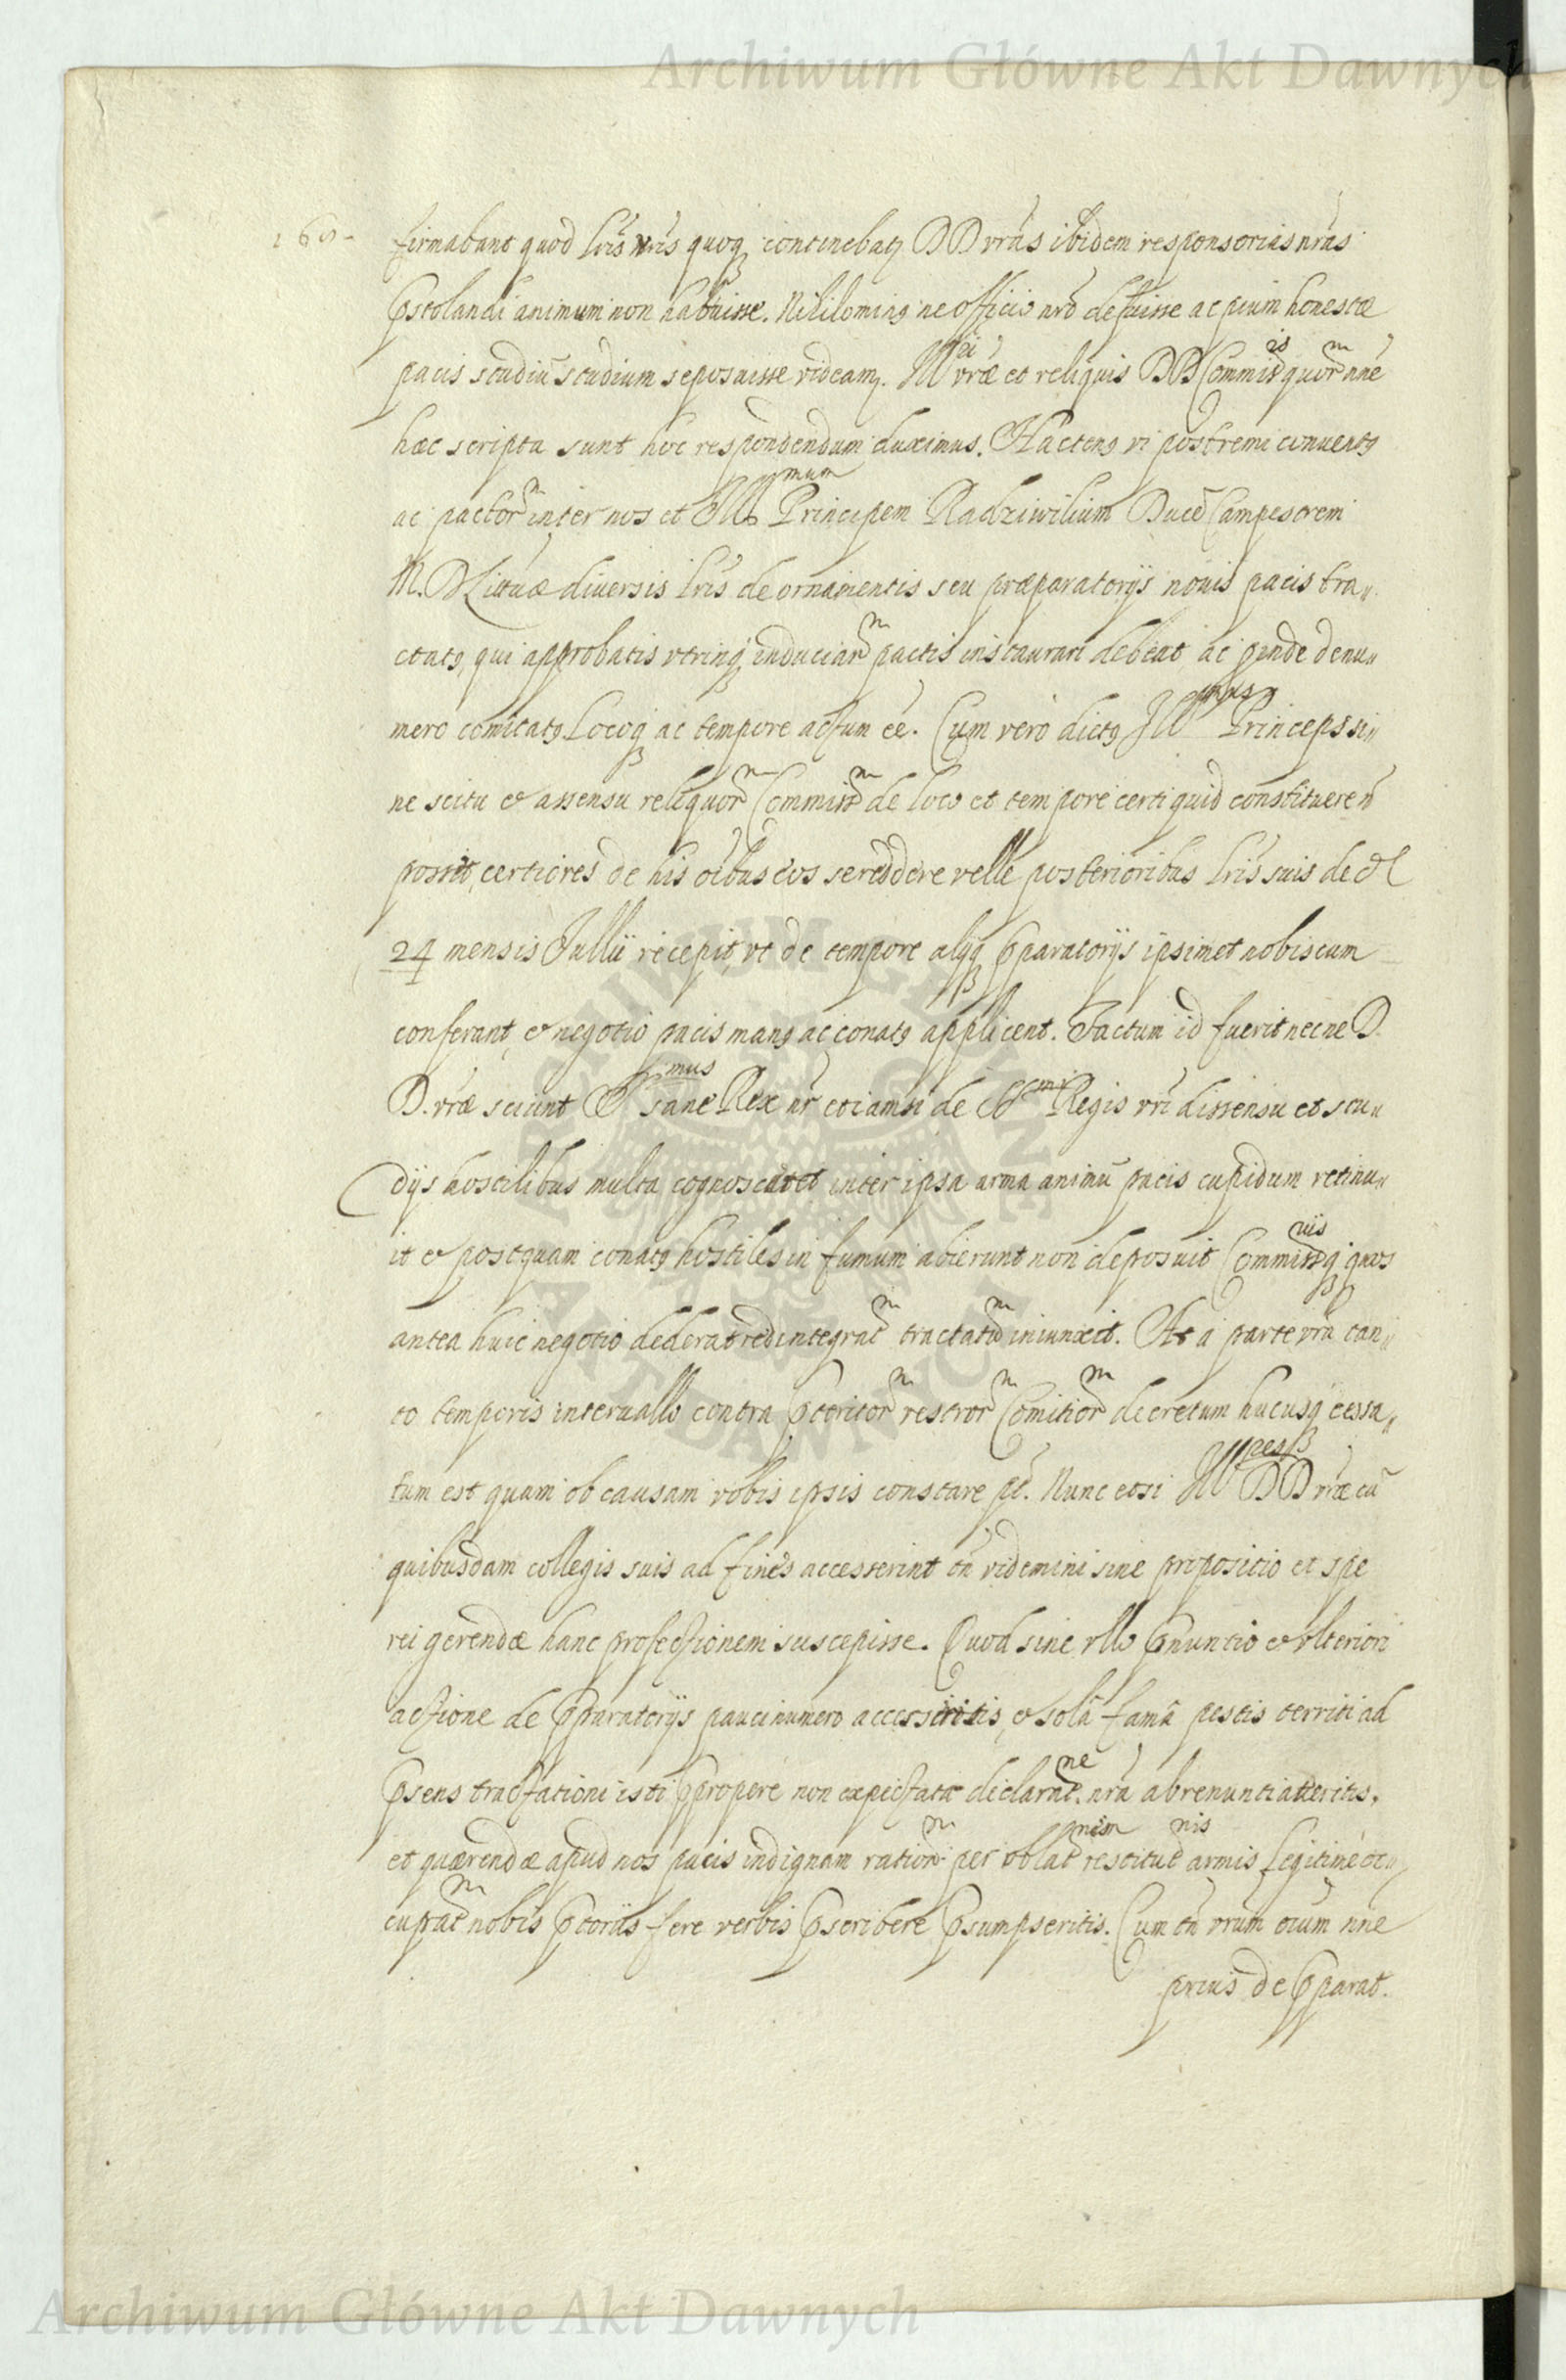 Archiwum Główne Akt Dawnych
firmabant quod lris nris quoq continebat DD vras ibidem responsorias nras
Pstolandi animum non habuisse. Nihilominq ne officio nro defuisse ac pium honestæ
pacis studiũ studium seposuisse videamq. Ill vræ et reliquis DD Commiss quorm nñe
hæc scripta sunt hoc respondendum duximus. Hactenq vi postremi conuentq
ac pactorm inter nos et Illmum Principem Radziwilium Ducẽ Campestrem
M. D Littuæ diuersis lris de ornamentis seu præparatorijs nouis pacis tra„
ctatq, qui approbatis vtrinq induciarm pactis instaurari debeat, ac pinde denu„
mero comitatq Locoq ac tempore actum ee. Cum vero dictq Illmus Princeps si„
ne scitu et assensu reliquorm Commissm de loco et tempore certi quid constituere ñ
possit, certiores de his oibus eos se reddere velle posterioribus lris suis de
24 mensis Jullii recepit, vt de tempore alijq Pparatorijs ipsimet nobiscum
conferant, et negotio pacis manq ac conatq applicent. Factum id fuerit necne D.
D. vræ sciunt Smus sane Rex nr etiamsi de Smi Regis vri dissensu et stu„
dijs hostilibus multa cognosceret inter ipsa arma animũ pacis cupidum retinu„
it et postquam conatq hostiles in fumum abierunt non deposuit Commissriisq quos
antea huic negotio dederat redintegratm tractatum iniunxit. At a parte vra tan„
to temporis interuallo contra Pteritorm vestrorm Comitiorm decretum hucusq cessa„
tum est quam ob causam vobis ipsis constare pt. Nunc etsi Ill DD vræ cũ
quibusdam collegis suis ad fines accesserint tñ videmini sine proposito et spe
rei gerendæ hanc profectionem suscepisse. Quod sine vllo Pnuntio et vlteriori
actione de Pparatorijs pauci numero accesseritis, et solâ famâ pestis territi ad
Psens tractationi isti Ppropere non expectata declaratne. nra abrenuntiaueritis.
et quærendæ apud nos pacis indignam rationm per oblatnem restitutnis armis legitime oc„
cupatm nobis Ptoriis fere verbis Pscribere Psumpseritis. Cum tñ vrum oium nñe
prius de Pparat.
Archiwum Główne Akt Dawnych